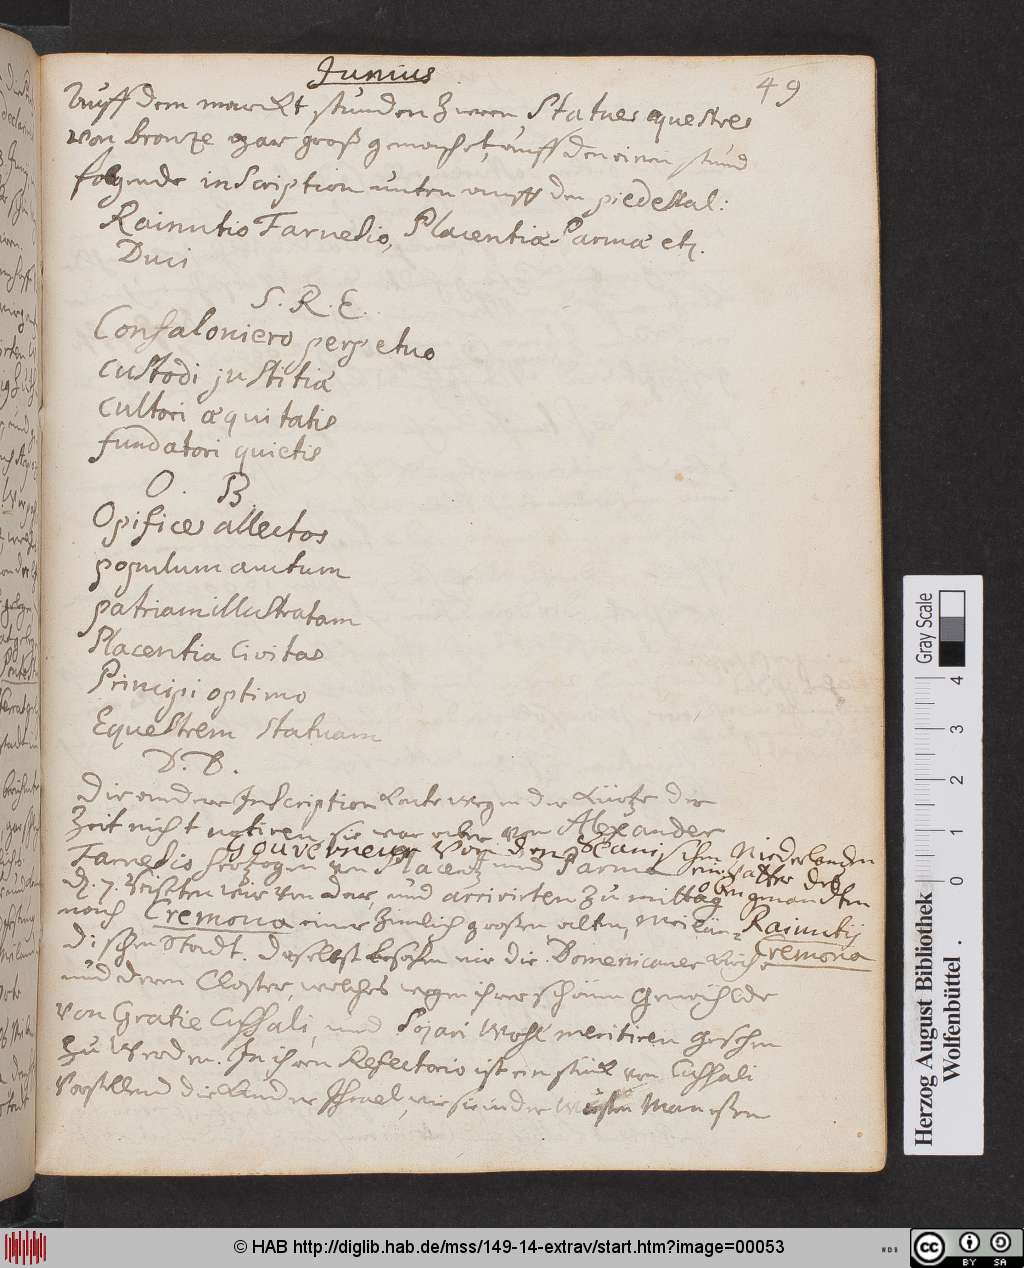 Junius
49
Auff dem marckt stunden zween Statues equestres
von bronze gar groß gemachet, auff den einen stund
folgende inscription unten auff den piedestal:
Rainutio Farnesio, Placentiæ Parmæ etz.
Duci
S. R. E.
Confaloniero perpetuo
custodi justitiæ
cultori æquitatis
fundatori quietis
O. B.
Opifices allectos
populum auctum
patriam illustratam
Placentia Civitas
Principi optimo
Equestrem statuam
D. D.
Die andere Inscription konte wegen der Kürtze der
Zeit nicht notiren sie war aber von Alexander
gouverneur von den Spanischen Niederlanden
Farnesio Hertzogen zu Placentz und Parma ein Vatter des
obengemandten
Rainutij
d. 7. reiseten wir von dar, und arrivirten zu mittag
nach Cremona einer zimlich großen alten, Meilän-
Cremona
dischen Stadt. Daselbst besahen wir die Domenicaner Kirche
und deren Closter, welches wegen ihrer schönen Gemählde
von Gratie Cussali, und Pojari wohl meritiren gesehen
zu werden. In ihren Refectorio ist ein stück von Cussali
vorstellend die Kinder Israel, wie sie in der Wüsten Man eßen
Herzog August Bibliothek
Wolfenbüttel
Gray Scale
0 1 2 3 4
© HAB http://diglib.hab.de/mss/149-14-extrav/start.htm?image=00053
cc BY SA